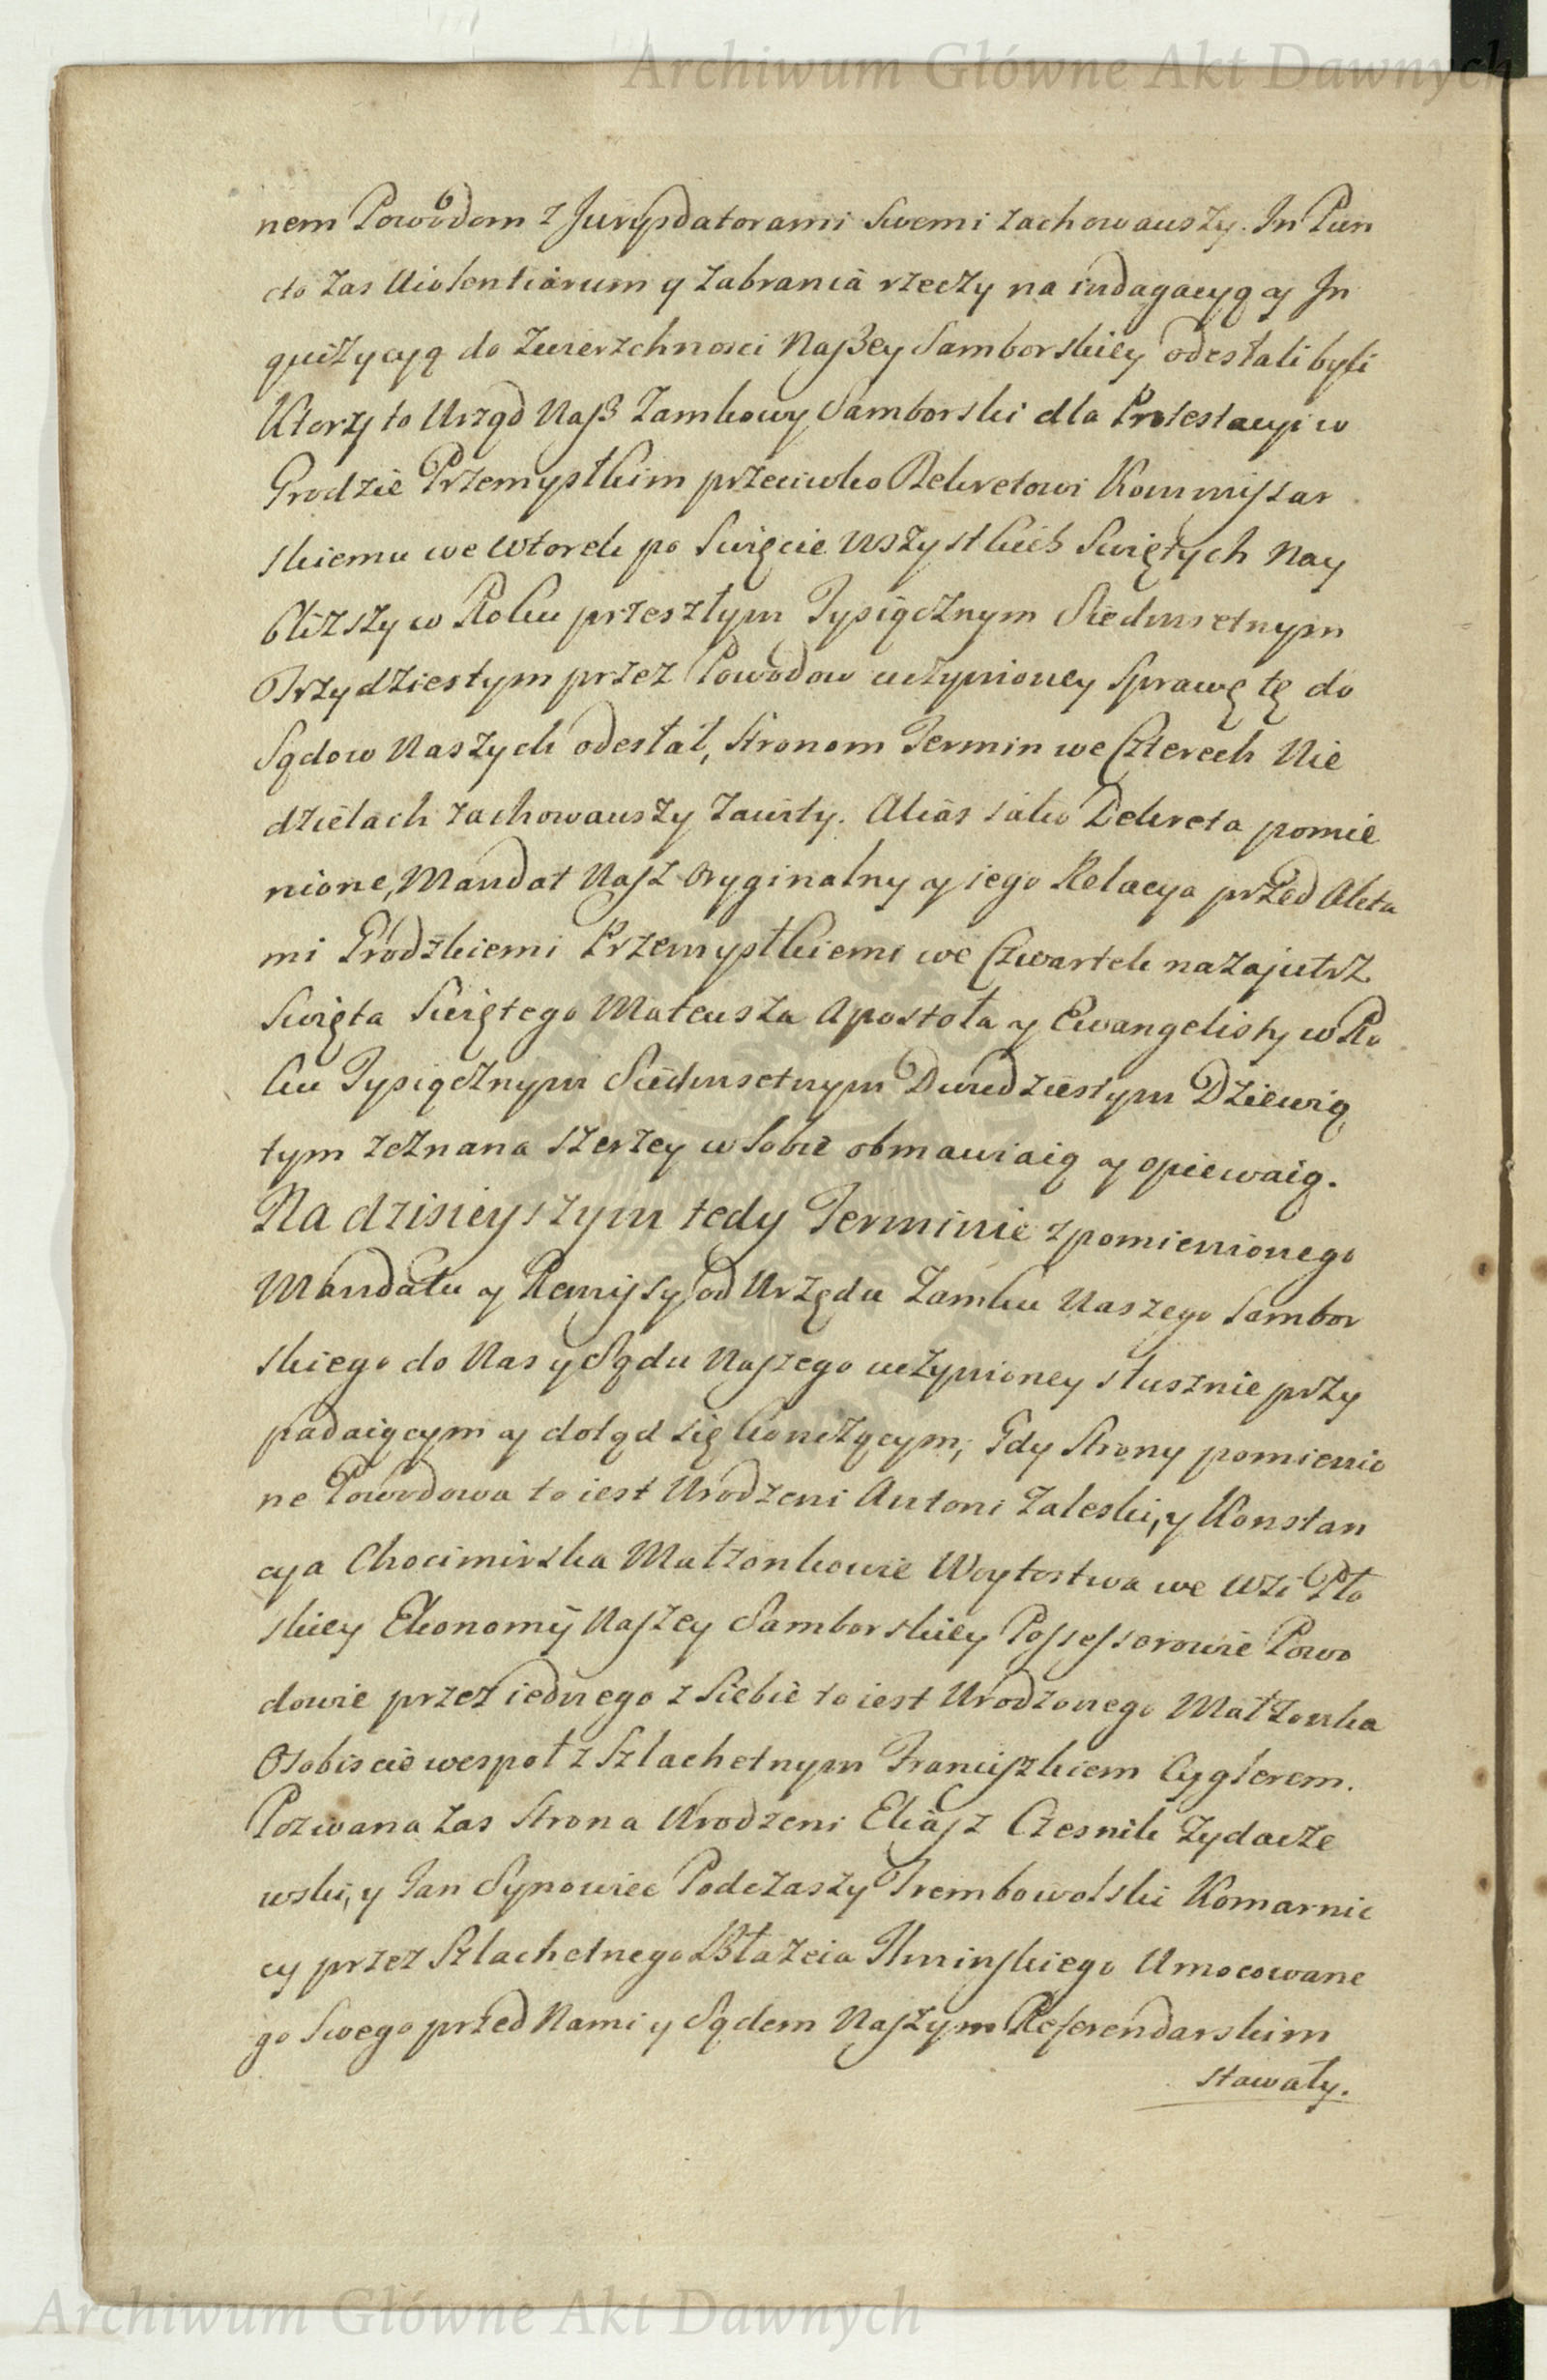 Archiwum Główne Akt Dawnych
nem Powodom z Jurysdatorami Swemi zachowauszy. In Pun
cto zas Uiolentiarum y zabrania rzeczy na indagacyą y In
quizycyą do Zwierzchnosci Naszey Samborskiey odesłali byli
Ktorzy to Urząd Nasz Zamkowy Samborski dla Protestacyi w
Grodzie Przemyskim przeciwko Dekretowi Kommissar
skiemu we Wtorek po Swięcie Wszystkich Swiętych Nay
bliższy w Roku przeszłym Tysiącznym Siedmsetnym
Trzydziestym przez Powodow uczynioney Sprawę tę do
Sądow Naszych odesłał, Stronom Termin we Czterech Nie
dzielach zachowauszy Zawity. Alias iako Dekreta pomie
nione, Mandat Nasz Oryginalny y iego Relacya przed Akta
mi Grodzkiemi Przemyskiemi we Czwartek nazajutrz
Swięta Swiętego Mateusza Apostoła y Ewangelisty w Ro
ku Tysiącznym Siedmsetnym Dwudziestym Dziewią
tym zeznana szerzey w Sobie obmawiaią y opiewaią.
Na dzisieyszym tedy Terminie z pomienionego
Mandatu y Remissy od Urzędu Zamku Naszego Sambor
skiego do Nas y Sądu Naszego uczynioney słusznie przy
padaiącym y dotąd się kończącym, Gdy Strony pomienio
ne Powodowa to iest Urodzeni Antoni Zaleski, y Konstan
cya Chocimirska Małżonkowie Woytostwa we Wsi Pło
skiey Ekonomij Naszey Samborskiey Possessorowie Powo
dowie przez iednego z Siebie to iest Urodzonego Małżonka
Osobiscie wespoł z Szlachetnym Franciszkiem Cyglerem.
Pozwana zas Strona Urodzeni Eliasz Czesnik Zydacze
wski, y Jan Synowiec Podczaszy Trembowolski Komarnic
cy przez Szlachetnego Błażeia Ilminskiego Umocowane
go Swego przed Nami y Sądem Naszym Referendarskim
stawały.
Archiwum Główne Akt Dawnych